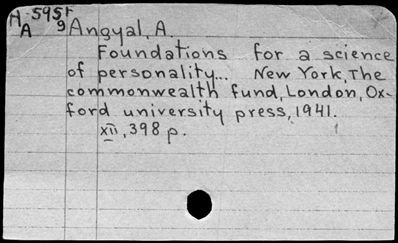 H-595F
A 9 Angyal, A.
Foundations for a science
of personality... New York, The
commonwealth fund, London, Ox-
ford university press, 1941.
xii, 398 p.